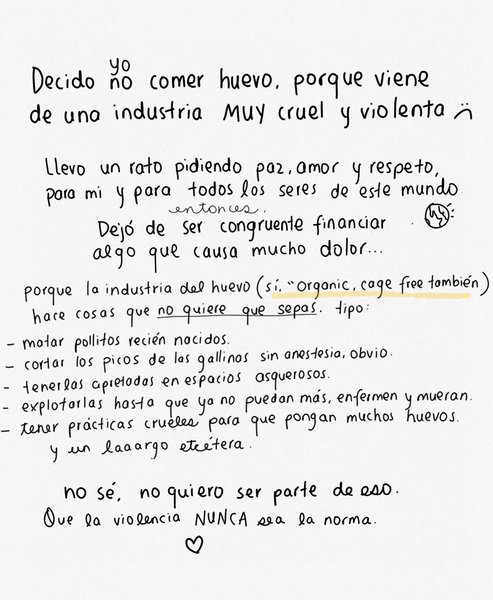 Decido yo no comer huevo, porque viene
de una industria MUY cruel y violenta
Llevo un rato pidiendo paz, amor y respeto,
para mi y para todos los seres de este mundo
entonces.
Dejó de ser congruente financiar
algo que causa mucho dolor...
porque la industria del huevo (sí, "organic, cage free también)
hace cosas que no quiere que sepas. tipo:
- matar pollitos recién nacidos.
- cortar los picos de las gallinas sin anestesia, obvio.
- tenerlas apretadas en espacios asquerosos.
- explotarlas hasta que ya no puedan más, enfermen y mueran.
- tener prácticas crueles para que pongan muchos huevos.
y un laaargo etcétera.
no sé, no quiero ser parte de eso.
Que la violencia NUNCA sea la norma.